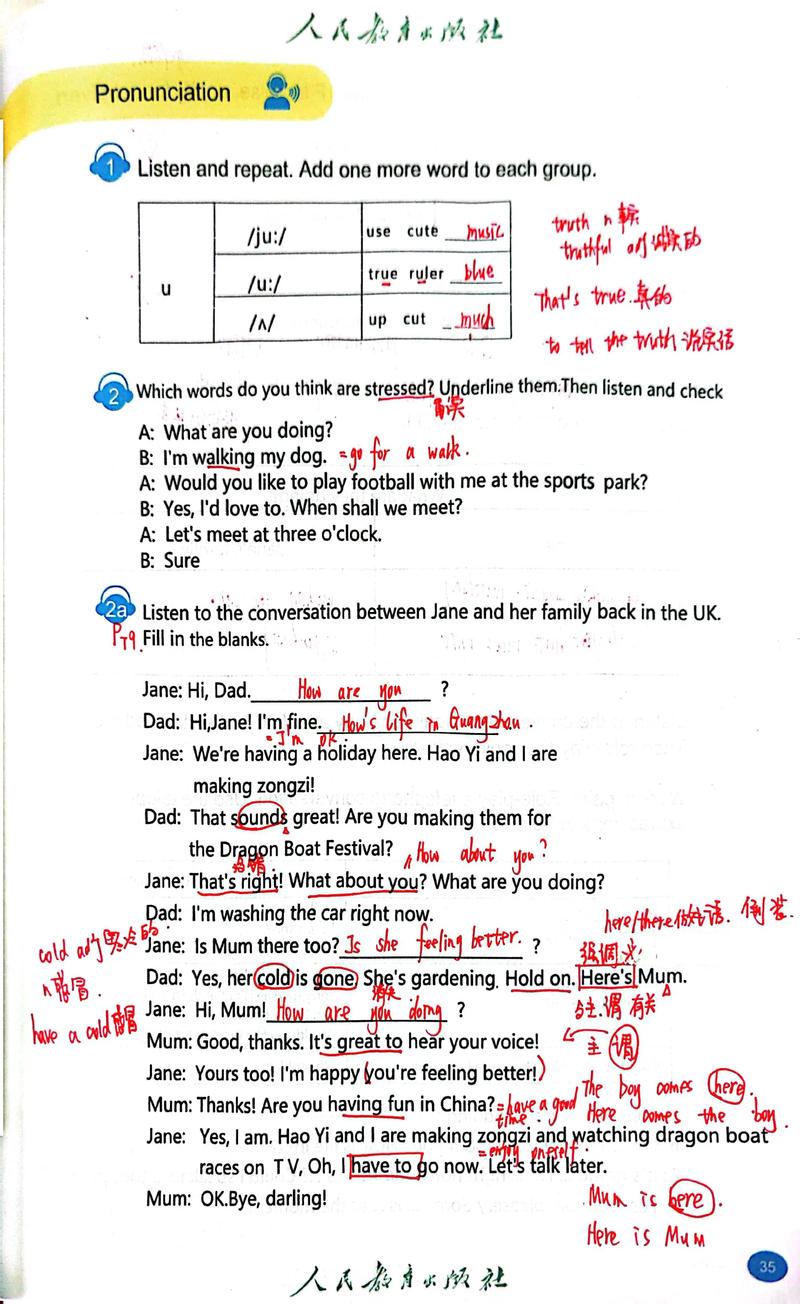 人民教育出版社
Pronunciation
1 Listen and repeat. Add one more word to each group.
u
/ju:/ use cute music
/u:/ true ruler blue
/ʌ/ up cut much
truth n 事实
truthful adj 诚实的
That's true. 真的
to tell the truth 说实话
2 Which words do you think are stressed? Underline them.Then listen and check
重读
A: What are you doing?
B: I'm walking my dog. =go for a walk.
A: Would you like to play football with me at the sports park?
B: Yes, I'd love to. When shall we meet?
A: Let's meet at three o'clock.
B: Sure
2a Listen to the conversation between Jane and her family back in the UK.
P79. Fill in the blanks.
Jane: Hi, Dad. How are you ?
Dad: Hi,Jane! I'm fine. How's life in Guangzhou.
= I'm ok
Jane: We're having a holiday here. Hao Yi and I are
making zongzi!
Dad: That sounds great! Are you making them for
the Dragon Boat Festival? How about you?
Jane: That's right! What about you? What are you doing?
Dad: I'm washing the car right now.
here/there 倒装.
cold adj 寒冷的.
Jane: Is Mum there too? Is she feeling better. ?
强调
n 感冒.
Dad: Yes, her cold is gone. She's gardening. Hold on. Here's Mum.
消失
与主.谓 有关
have a cold
Jane: Hi, Mum! How are you doing ?
Mum: Good, thanks. It's great to hear your voice!
主 谓
Jane: Yours too! I'm happy (you're feeling better!)
The boy comes here.
Mum: Thanks! Are you having fun in China? =have a good time.
Here comes the boy.
Jane: Yes, I am. Hao Yi and I are making zongzi and watching dragon boat
=enjoy oneself.
races on TV, Oh, I have to go now. Let's talk later.
Mum: OK.Bye, darling!
Mum is here.
Here is Mum
35
人民教育出版社